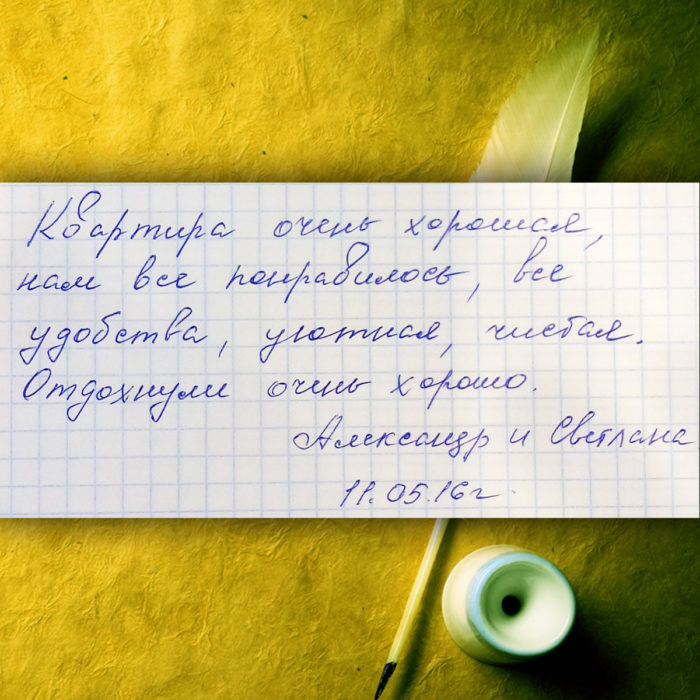 Квартира очень хорошая,
нам все понравилось, все
удобства, уютная, чистая.
Отдохнули очень хорошо.
Александр и Светлана
11.05.16 г.